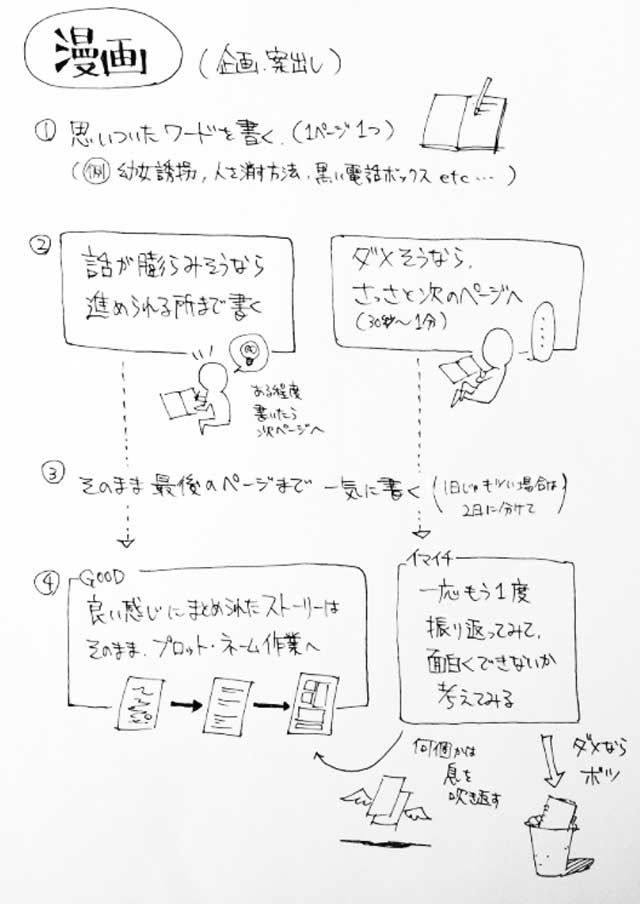 漫画
(企画.案出し)
① 思いついたワードを書く.(1ページ1つ)
(例 幼女誘拐, 人を消す方法, 黒い電話ボックス etc…)
②
話が膨らみそうなら
進められる所まで書く
ダメそうなら,
さっさと次のページへ
(30秒〜1分)
ある程度
書いたら
次ページへ
③ そのまま最後のページまで 一気に書く
(1日じゃキツい場合は
2日に分けて)
④
GOOD
良い感じにまとめられたストーリーは
そのまま、プロット・ネーム作業へ
イマイチ
一応もう1度
振り返ってみて,
面白くできないか
考えてみる
何個かは
息を
吹き返す
ダメなら
ボツ